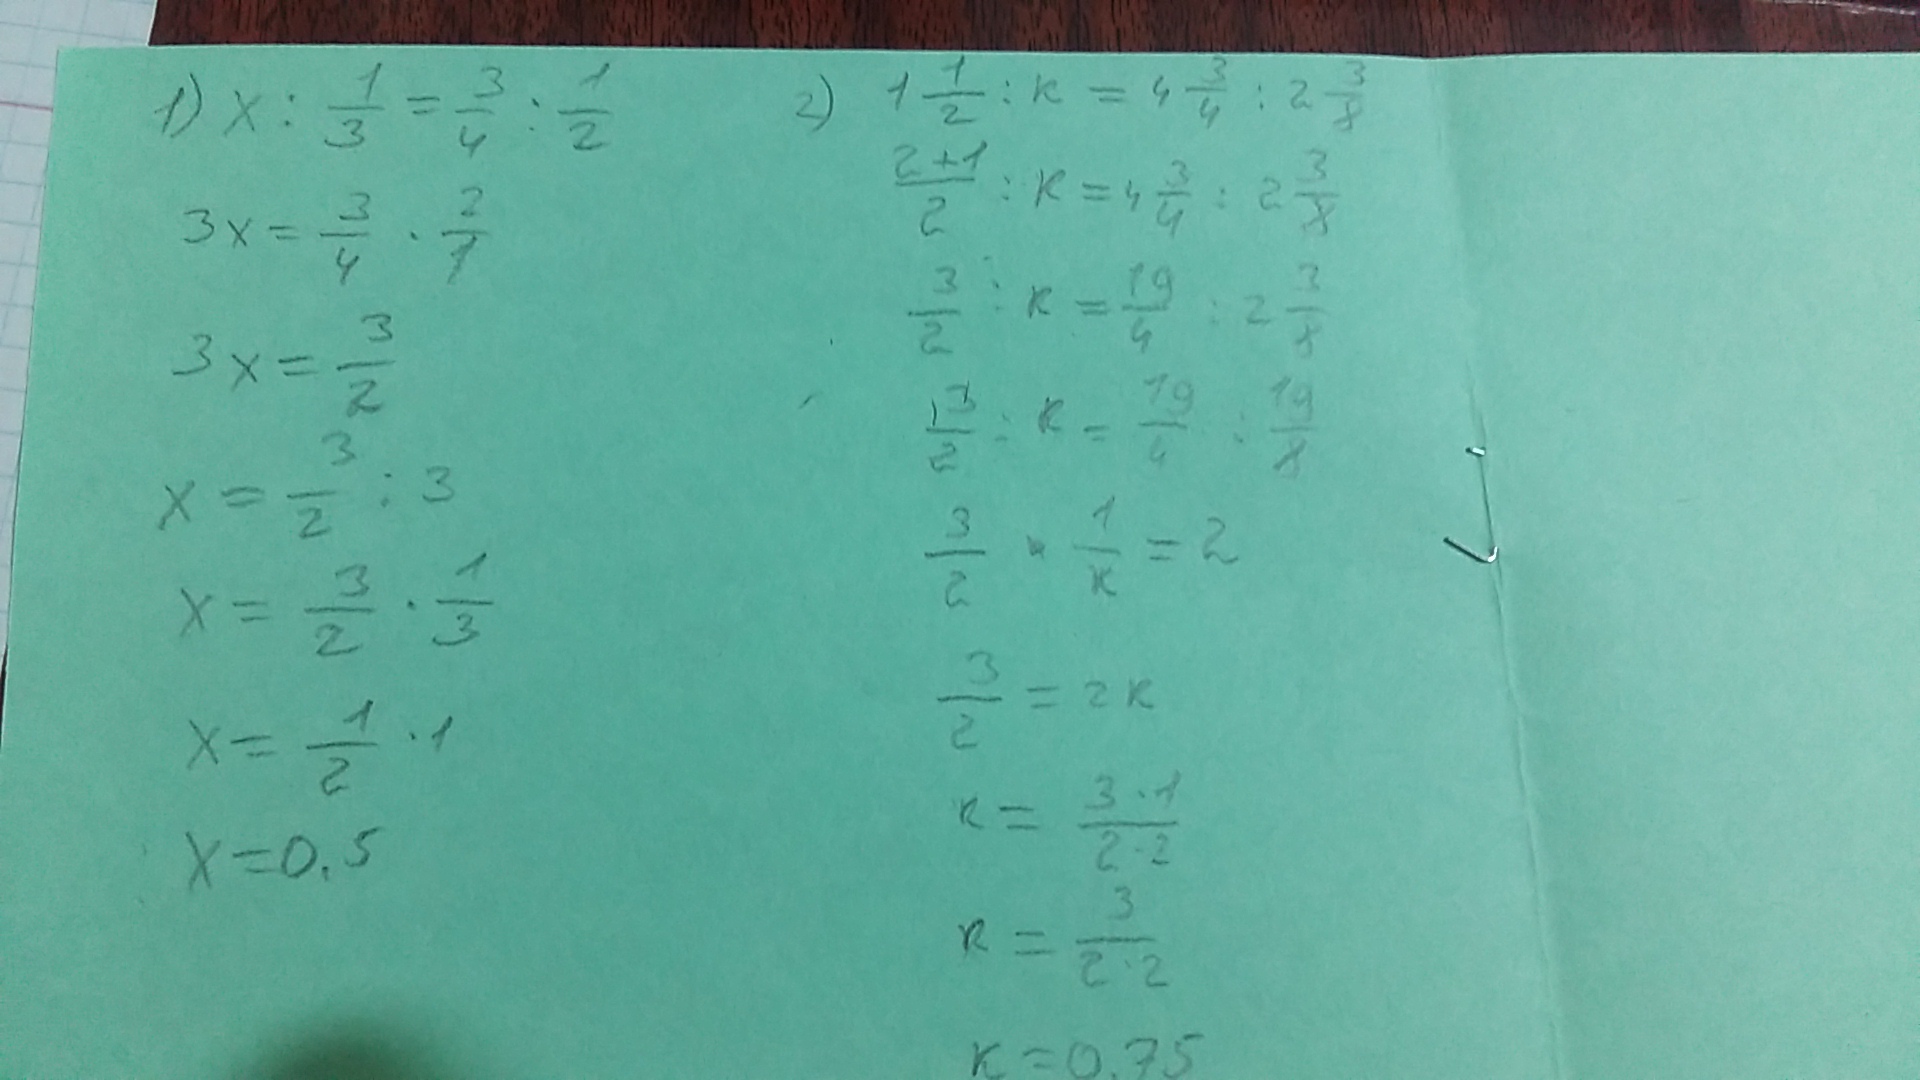 1) x : 1/3 = 3/4 : 1/2
3x = 3/4 · 2/1
3x = 3/2
x = 3/2 : 3
x = 3/2 · 1/3
x = 1/2 · 1
x = 0.5
2) 1 1/2 : к = 4 3/4 : 2 3/8
2+1/2 : к = 4 3/4 : 2 3/8
3/2 : к = 19/4 : 2 3/8
3/2 : к = 19/4 : 19/8
3/2 · 1/к = 2
3/2 = 2к
к = 3·1/2·2
к = 3/2·2
к = 0.75